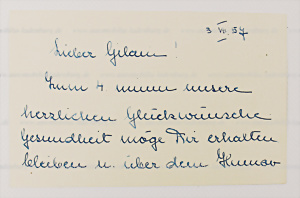 3 VII. 57
Lieber Gelam!
Zum 4 unsere
herzlichen Glückwünsche
Gesundheit möge Dir erhalten
bleiben u. über dem Humor